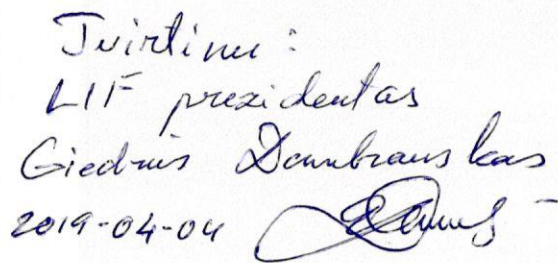 Tvirtinu:
LIF prezidentas
Giedrius Dambrauskas
2019-04-04